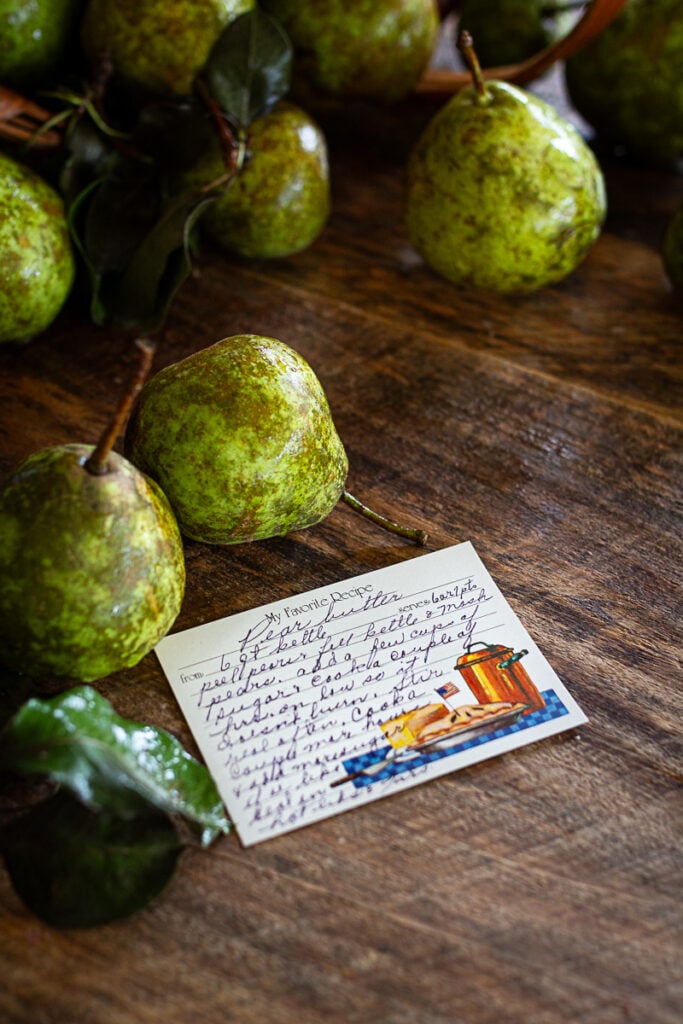 My Favorite Recipe
Pear butter
serves 6 or 7 pts
From: 6 qt kettle
peel pears. fill kettle & mash
pears. add a few cups of
sugar. cook a couple of
hrs. on low so it
doesn't burn. Stir
real often. Cook a
couple more hours
& add more sugar
if u like
Seal in
hot